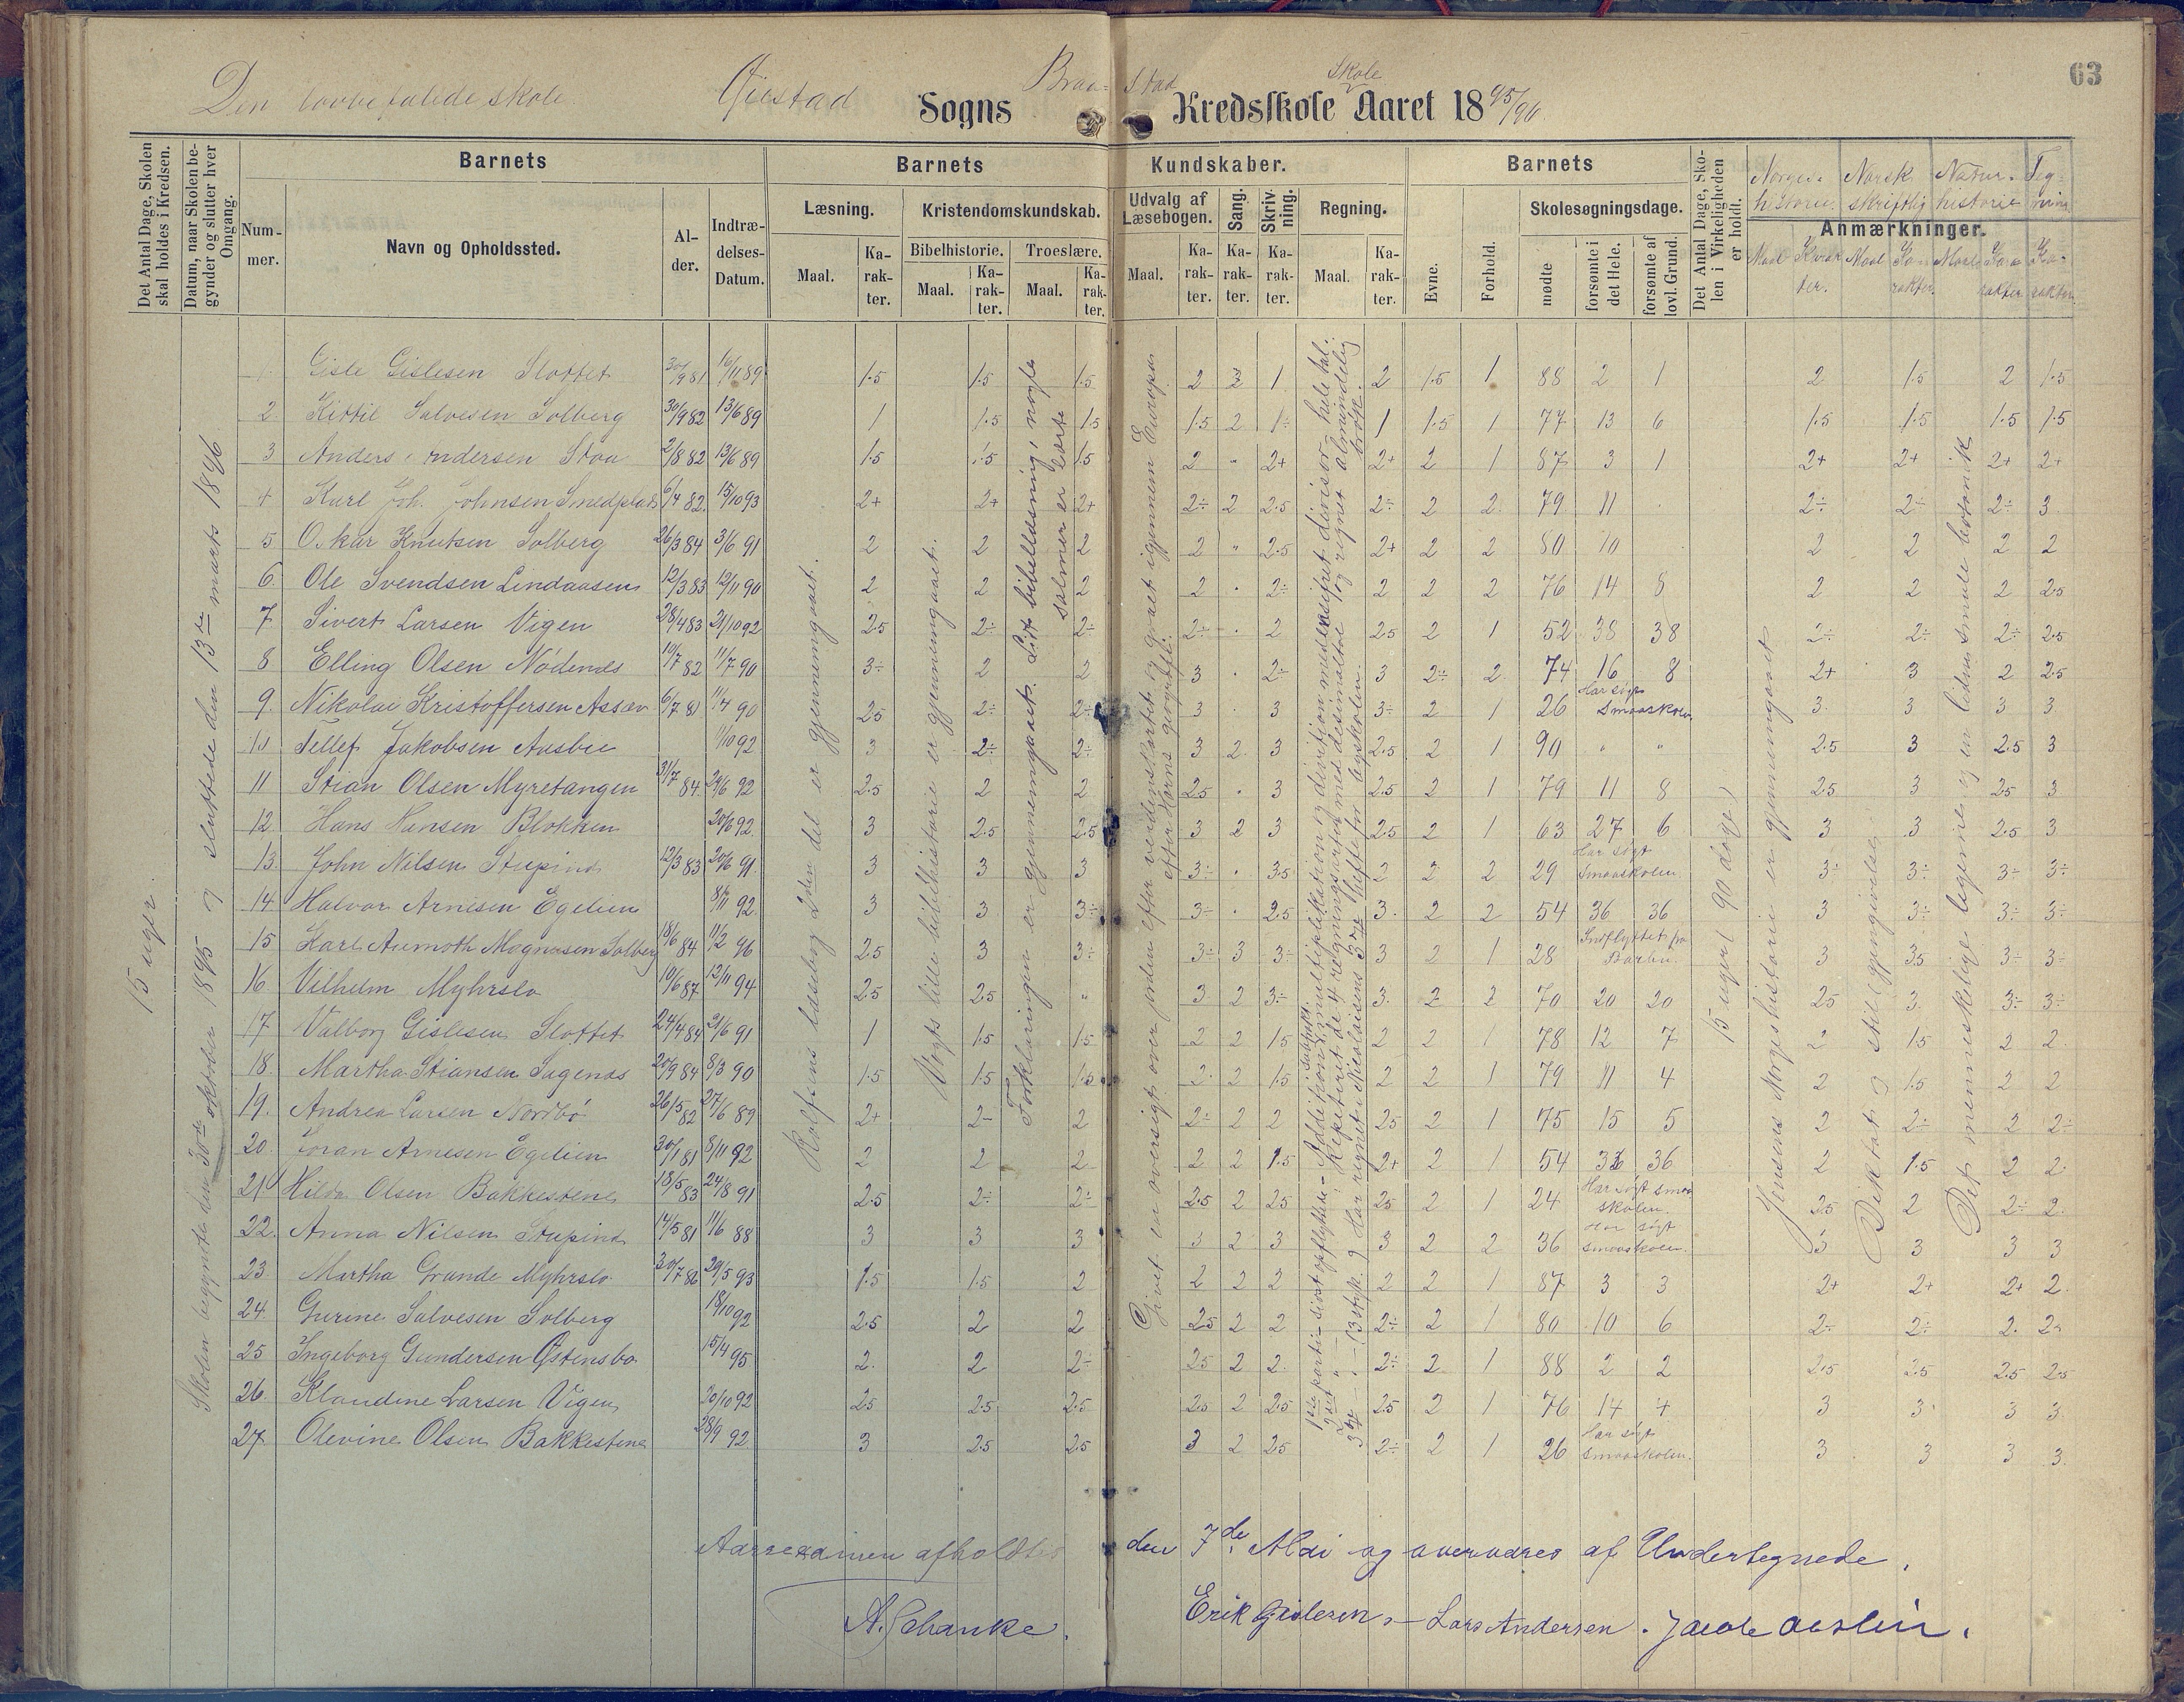 63
Den lovbefalede skole. Øiestad Sogns Braa- stad Kredsskole Skole Aaret 1895/96.
Det Antal Dage, Skolen skal holdes i Kredsen.
Datum, naar Skolen begynder og slutter hver Omgang.
Barnets
Num-mer.
Navn og Opholdssted.
Al-der.
Indtræ-delses-Datum.
Barnets Kundskaber.
Læsning.
Maal.
Ka-rak-ter.
Kristendomskundskab.
Bibelhistorie.
Maal.
Ka-rak-ter.
Troeslære.
Maal.
Ka-rak-ter.
Udvalg af Læsebogen.
Maal.
Ka-rak-ter.
Sang.
Ka-rak-ter.
Skriv-ning.
Ka-rak-ter.
Regning.
Maal.
Ka-rak-ter.
Barnets
Evne.
Forhold.
Skolesøgningsdage.
mødte
forsømte i det Hele.
forsømte af lovl. Grund.
Det Antal Dage, Skolen i Virkeligheden er holdt.
Anmærkninger.
Norges historie. Norsk skriftlig Natur-historie Teg-ning
Maal Karakter. Maal Karakter. Maal Karakter Karakter.
15 uger.
Skolen begyndte den 30te oktober 1895 og sluttede den 13de marts 1896
Rolfsens læsebog 2den del er gjennemgaaet.
Vogts lille bibelhistorie er gjennemgaaet.
Forklaringen er gjennemgaaet. Lidt bibellæsning, nogle salmer er lært
Givet en oversigt over jorden efter verdenskartet og gaaet igjennem Europa efter Horns geografi.
15 uger (90 dage)
Jensens Norgeshistorie er gjennemgaaet
Diktat og stil (gjengivelse)
Det menneskelige legeme og en liden smule botanik
1 Gisle Gislesen Slottet 30/9 81 16/11 89 1.5 1.5 1.5 2 2 1 2 1.5 1 88 2 1 2 1.5 2 1.5
2 Kittil Salvesen Solberg 30/9 82 13/6 89 1 1.5 1.5 1.5 2 1÷ 1 1.5 1 77 13 6 1.5 1.5 1.5 1.5
3 Anders Andersen Stoa 2/8 82 13/6 89 1.5 1.5 1.5 2 " 2+ 2+ 2 1 87 3 1 2+ 2+ 2+ 2+
4 Karl Joh. Johnsen Smedplads 6/4 82. 15/10 93 2+ 2+ 2+ 2÷ 2 2.5 2÷ 2 2 79 11 2÷ 2÷ 2÷ 3
5 Oskar Knutsen Solberg 26/3 84 3/6 91 2 2 2 2 " 2.5 2+ 2 2 80 10 2 2 2 2
6 Ole Svendsen Lindaasen 12/3 83 12/11 90 2 2 2 2 · 2÷ 2 2 2 76 14 8 2 2 2 2.5
7 Sivert Larsen Vigen 28/4 83 21/10 92 2.5 2÷ 2÷ 2÷ · 2 2.5 2 1 52 38 38 2÷ 2÷ 2÷ 2.5
8 Elling Olsen Nødenes 10/7 82 11/7 90 3÷ 2 2 3 · 2÷ 3 2÷ 2 74 16 8 2+ 3 2 2.5
9. Nikolai Kristoffersen Assæv 6/7 81 11/4 90 2.5 2÷ 2÷ 3 · 3 3÷ 2 1 26 Har søgt Smaaskolen. 3 3 3 3
10 Tellef Jakobsen Aasbie 1/10 92 3 2÷ 2÷ 3 2 3 2.5 2 1 90 " " 2.5 3 2.5 3
11 Stian Olsen Myretangen 31/7 84 29/6 92 2.5 2 2 2.5 · 3 2.5 2 1 79 11 8 2.5 3 2.5 3
12 Hans Hansen Blokken 20/6 92 3 2.5 2.5 3 2 3 2.5 2 1 63 27 6 3 3 2.5 3
13. John Nilsen Stupind 12/3 83 20/6 91 3 3 3 3÷ · 3.5 2 2 2 29 Har søgt Smaaskolen. 3÷ 3÷ 3÷ 3÷
14 Halvor Arnesen Egelien 8/11 92 3 3 3÷ 3÷ · 2.5 3 2 2 54 36 36 3 3÷ 3÷ 3÷
15 Karl Aumoth Magnusen Solberg 18/6 84 11/2 96 2.5 3 3÷ 3÷ 3 3÷ 3 2 1 28 Indflyttet fra Barbu. 3 3.5 3÷ 3÷
16 Vilhelm Myhrslo 10/6 87 12/11 94 2.5 2.5 " 3 2 3÷ 3 2 2 70 20 20 2.5 3 3÷ 3÷
17 Valborg Gislesen Slottet 24/4 84 21/6 91 1 1.5 1.5 2 2 1.5 2 2 1 78 12 7 2 1.5 2 2
18. Martha Stiansen Sagenes 20/9 84 8/3 90 1.5 1.5 1.5 2 2 1.5 2 2 1 79 11 4 2 1.5 2 2
19. Andrea Larsen Nordbø 26/5 82 27/6 89 2+ 2÷ 2 2÷ 2 2 2.5 2 1 75 15 5 2 2÷ 2 2÷
20. Joran Arnesen Egelien 30/1 81 8/11 92 2 2 2 2 2 1.5 2+ 2 1 54 36 36 2 1.5 2 2
21 Hilda Olsen Bakkestene 18/5 83 24/8 91 2.5 2÷ 2÷ 2.5 2 2.5 2.5 2 1 24 Har søgt smaaskolen. 2.5 2 2÷ 2
22. Anna Nilsen Stupind 14/5 81 11/6 88 3 3 3 3 2 3 3 2 2 36 Har søgt smaaskolen. 3 3 3 3
23 Martha Grande Myhrslo 30/7 86 29/5 93 1.5 1.5 2 2 2 2 2 2 1 87 3 3 2+ 2+ 2+ 2
24. Gurine Salvesen Solberg 18/10 92 2.5 2 2 2.5 2 2 2÷ 2 1 80 10 6 2÷ 2÷ 2. 2÷
25 Ingeborg Gundersen Østensbo 15/4 95 2. 2 2÷ 2.5 2 2 2÷ 2 1 88 2 2 2.5 2.5 2.5 2.5
26. Klaudine Larsen Vigen 20/10 92 2.5 2.5 2.5 2.5 2 2.5 2.5 2 1 76 14 4 3 3 3 3
27. Olevine Olsen Bakkestene 28/9 92 3 2.5 2.5 3 2 2.5 2÷ 2 1 26 Har søgt smaaskolen. 3 3 3 3
Aarsexamen afholdtes den 7de Mai og overværes af Undertegnede.
A. Schanke. Erik Gislesen. – Lars Andersen. Jacob Aaslin.